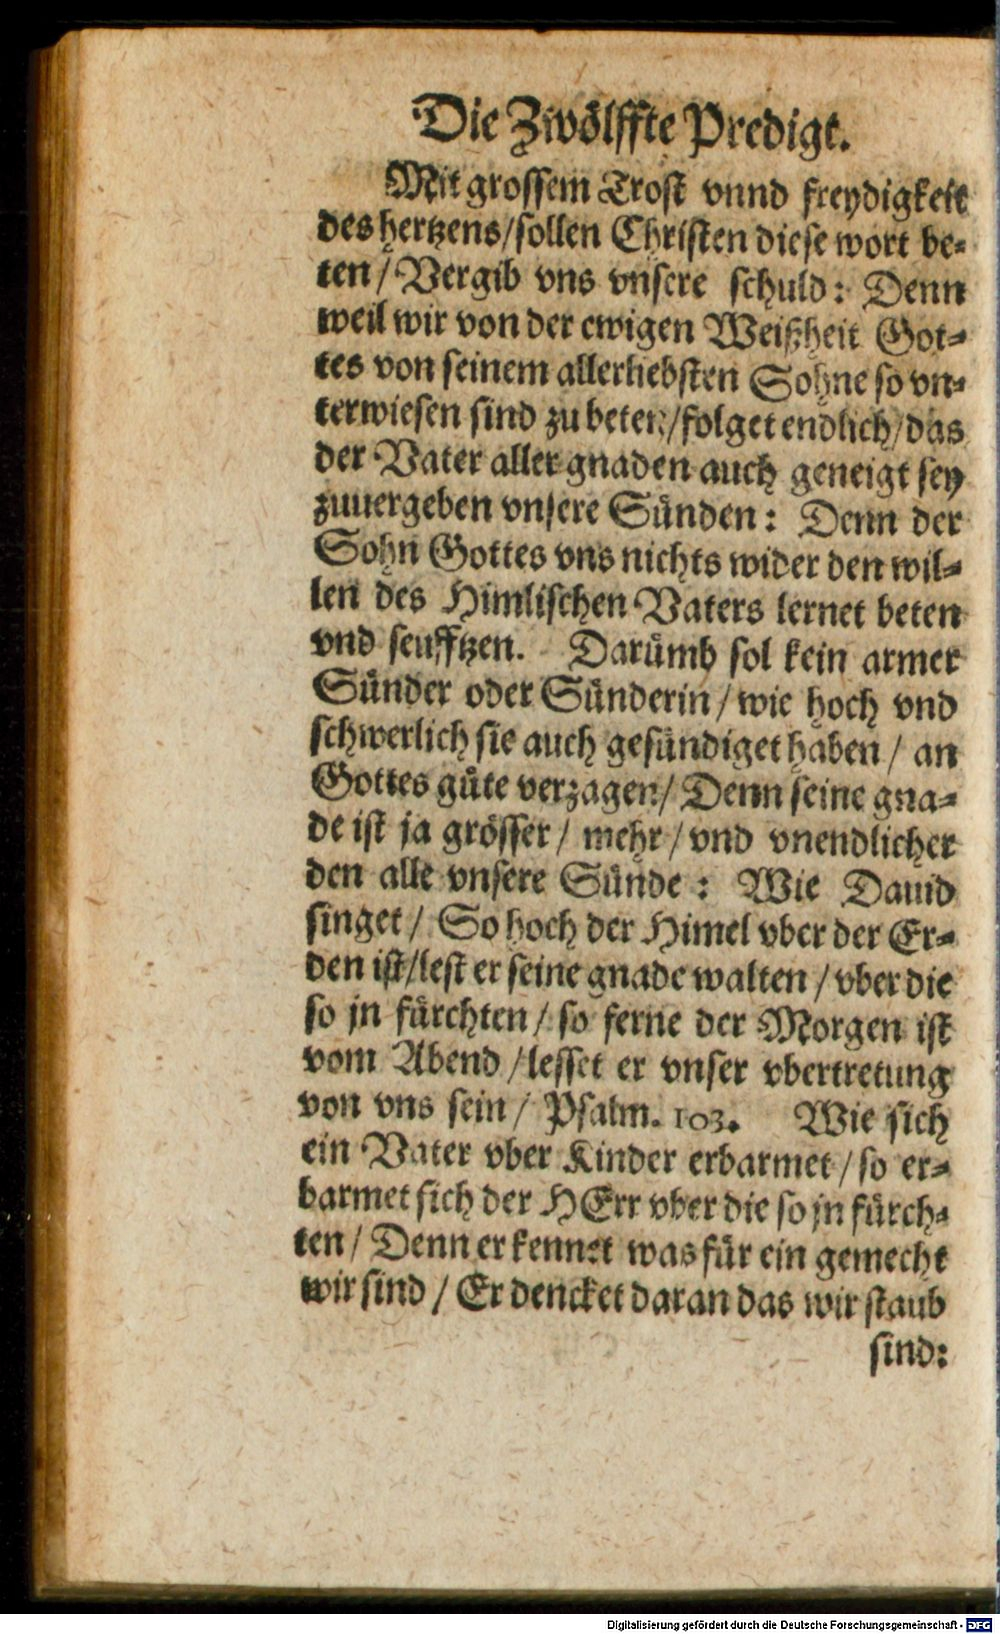 Die Zwölffte Predigt.
Mit grossem Trost vnnd freydigkeit
des hertzens/sollen Christen diese wort be-
ten/Vergib vns vnsere schuld: Denn
weil wir von der ewigen Weißheit Got-
tes von seinem allerliebsten Sohne so vn-
terwiesen sind zu beten/folget endlich/das
der Vater aller gnaden auch geneigt sey
zuuergeben vnsere Sünden: Denn der
Sohn Gottes vns nichts wider den wil-
len des Himlischen Vaters lernet beten
vnd seufftzen. Darümb sol kein armer
Sünder oder Sünderin/wie hoch vnd
schwerlich sie auch gesündiget haben/an
Gottes güte verzagen/Denn seine gna-
de ist ja grösser/mehr/vnd vnendlicher
den alle vnsere Sünde: Wie Dauid
singet/So hoch der Himel vber der Er-
den ist/lest er seine gnade walten/vber die
so jn fürchten/so ferne der Morgen ist
vom Abend/lesset er vnser vbertretung
von vns sein/Psalm. 103. Wie sich
ein Vater vber Kinder erbarmet/so er-
barmet sich der HErr vber die so jn fürch-
ten/Denn er kennet was für ein gemecht
wir sind/Er dencket daran das wir staub
sind:
Digitalisierung gefördert durch die Deutsche Forschungsgemeinschaft - DFG